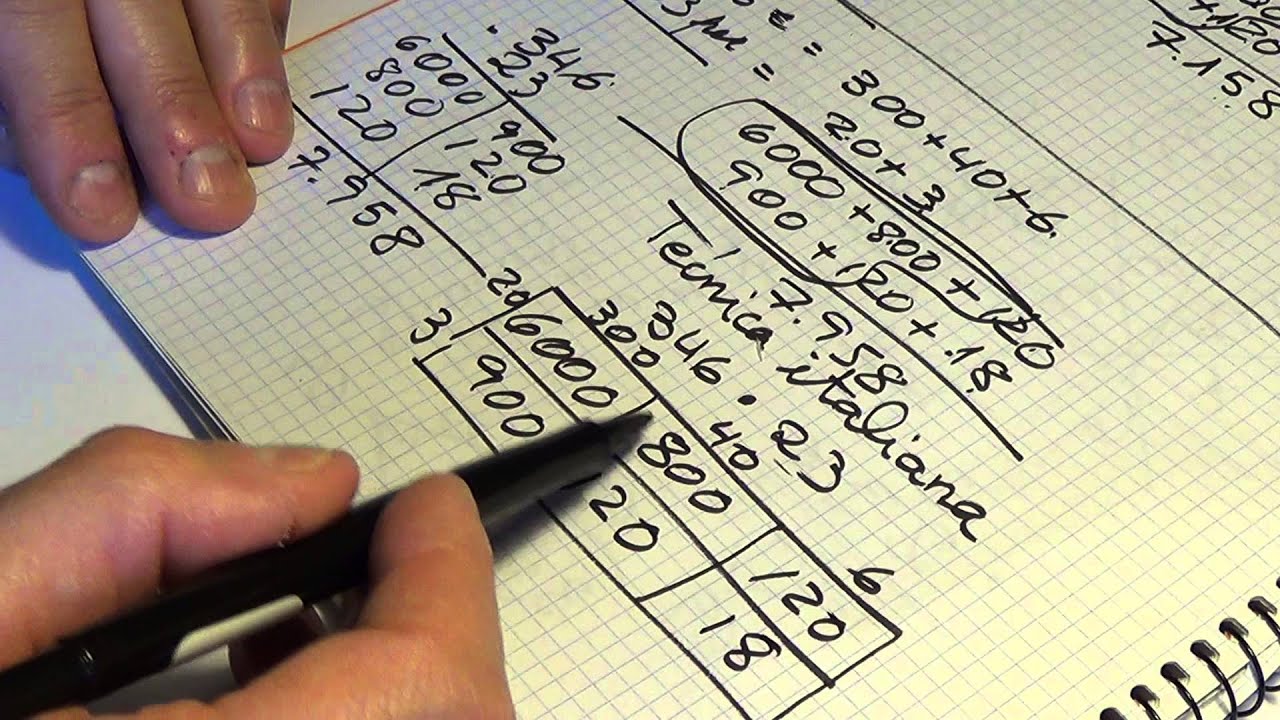 .346.
23
6000 900
800 120
120 18
7.958
= 300+40+6.
= 20+3
6000+800+120
900+120+.18.
7.958
Tecnica italiana
346 . 23
300 40 6
20 6000 800 120
3 900 20 18
+120
7.158